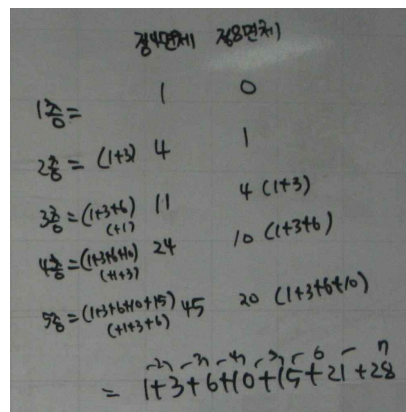 정4면체 정8면체
1층= 1 0
2층= (1+3) 4 1
3층=(1+3+6) 11 4 (1+3)
(+1)
4층=(1+3+6+10) 24 10 (1+3+6)
(+1+3)
5층=(1+3+6+10+15) 45 20 (1+3+6+10)
(+1+3+6)
2 3 4 5 6 7
= 1+3+6+10+15+21+28